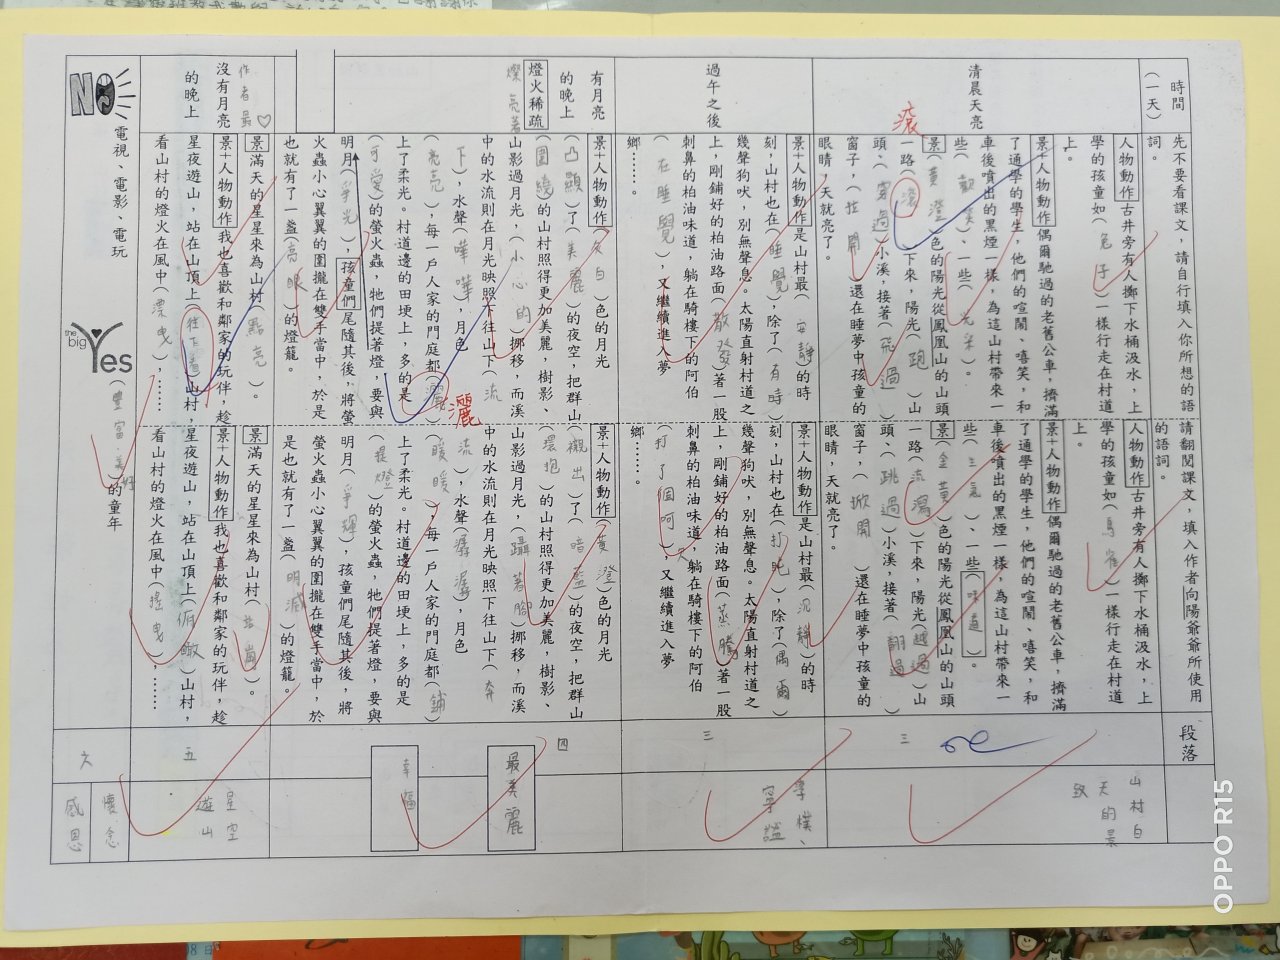 時間
(一天)
先不要看課文，請自行填入你所想的語
詞。
請翻閱課文，填入作者向陽爺爺所使用
的語詞。
段落
清晨天亮
人物動作古井旁有人擲下水桶汲水，上
學的孩童如(兔子)一樣行走在村道
上。
景+人物動作偶爾馳過的老舊公車，擠滿
了通學的學生，他們的喧鬧、嘻笑，和
車後噴出的黑煙一樣，為這山村帶來一
些(歡笑)、一些(光采)。
景(黃澄)色的陽光從鳳凰山的山頭
一路(滾)下來，陽光(跑)山
滾
頭、(穿過)小溪，接著(飛過)
窗子，(拉開)還在睡夢中孩童的
眼睛，天就亮了。
人物動作古井旁有人擲下水桶汲水，上
學的孩童如(鳥雀)一樣行走在村道
上。
景+人物動作偶爾馳過的老舊公車，擠滿
了通學的學生，他們的喧鬧、嘻笑，和
車後噴出的黑煙一樣，為這山村帶來一
些(生氣)、一些(味道)。
景(金黃)色的陽光從鳳凰山的山頭
一路(流瀉)下來，陽光(越過)山
頭、(跳過)小溪，接著(翻過)
窗子，(掀開)還在睡夢中孩童的
眼睛，天就亮了。
三
山村白
天的景
致
過午之後
景+人物動作是山村最(安靜)的時
刻，山村也在(睡覺)，除了(有時)
幾聲狗吠，別無聲息。太陽直射村道之
上，剛鋪好的柏油路面(散發)著一股
刺鼻的柏油味道，躺在騎樓下的阿伯
(在睡覺)，又繼續進入夢
鄉……。
景+人物動作是山村最(沉靜)的時
刻，山村也在(打盹)，除了(偶爾)
幾聲狗吠，別無聲息。太陽直射村道之
上，剛鋪好的柏油路面(蒸騰)著一股
刺鼻的柏油味道，躺在騎樓下的阿伯
(打了個呵欠)，又繼續進入夢
鄉……。
三
淳樸、
寧謐
有月亮
的晚上
燈火稀疏
燦亮著
景+人物動作(灰白)色的月光
(凸顯)了(美麗)的夜空，把群山
(圍繞)的山村照得更加美麗，樹影、
山影過月光，(小心的)挪移，而溪
中的水流則在月光映照下往山下(流
下)，水聲(嘩嘩)，月色
(亮亮)，每一戶人家的門庭都(灑)
灑
上了柔光。村道邊的田埂上，多的是
(可愛)的螢火蟲，牠們提著燈，要與
明月(爭光)，孩童們尾隨其後，將螢
火蟲小心翼翼的圍攏在雙手當中，於是
也就有了一盞(亮眼)的燈籠。
景+人物動作(黃澄)色的月光
(襯出)了(暗藍)的夜空，把群山
(環抱)的山村照得更加美麗，樹影、
山影過月光，(躡著腳)挪移，而溪
中的水流則在月光映照下往山下(奔
流)，水聲(潺潺)，月色
(暖暖)，每一戶人家的門庭都(鋪)
上了柔光。村道邊的田埂上，多的是
(提燈)的螢火蟲，牠們提著燈，要與
明月(爭輝)，孩童們尾隨其後，將
螢火蟲小心翼翼的圍攏在雙手當中，於
是也就有了一盞(明滅)的燈籠。
四
最美麗
幸福
作者最♡
沒有月亮
的晚上
景滿天的星星來為山村(點亮)。
景+人物動作我也喜歡和鄰家的玩伴，趁
星夜遊山，站在山頂上(往下看)山村，
看山村的燈火在風中(漂曳)，……
景滿天的星星來為山村(站崗)。
景+人物動作我也喜歡和鄰家的玩伴，趁
星夜遊山，站在山頂上(俯瞰)山村，
看山村的燈火在風中(搖曳)，……
五
星空
遊山
NO
電視、電影、電玩
the big Yes
(豐富、美好)的童年
六
懷念
感恩
OPPO R15